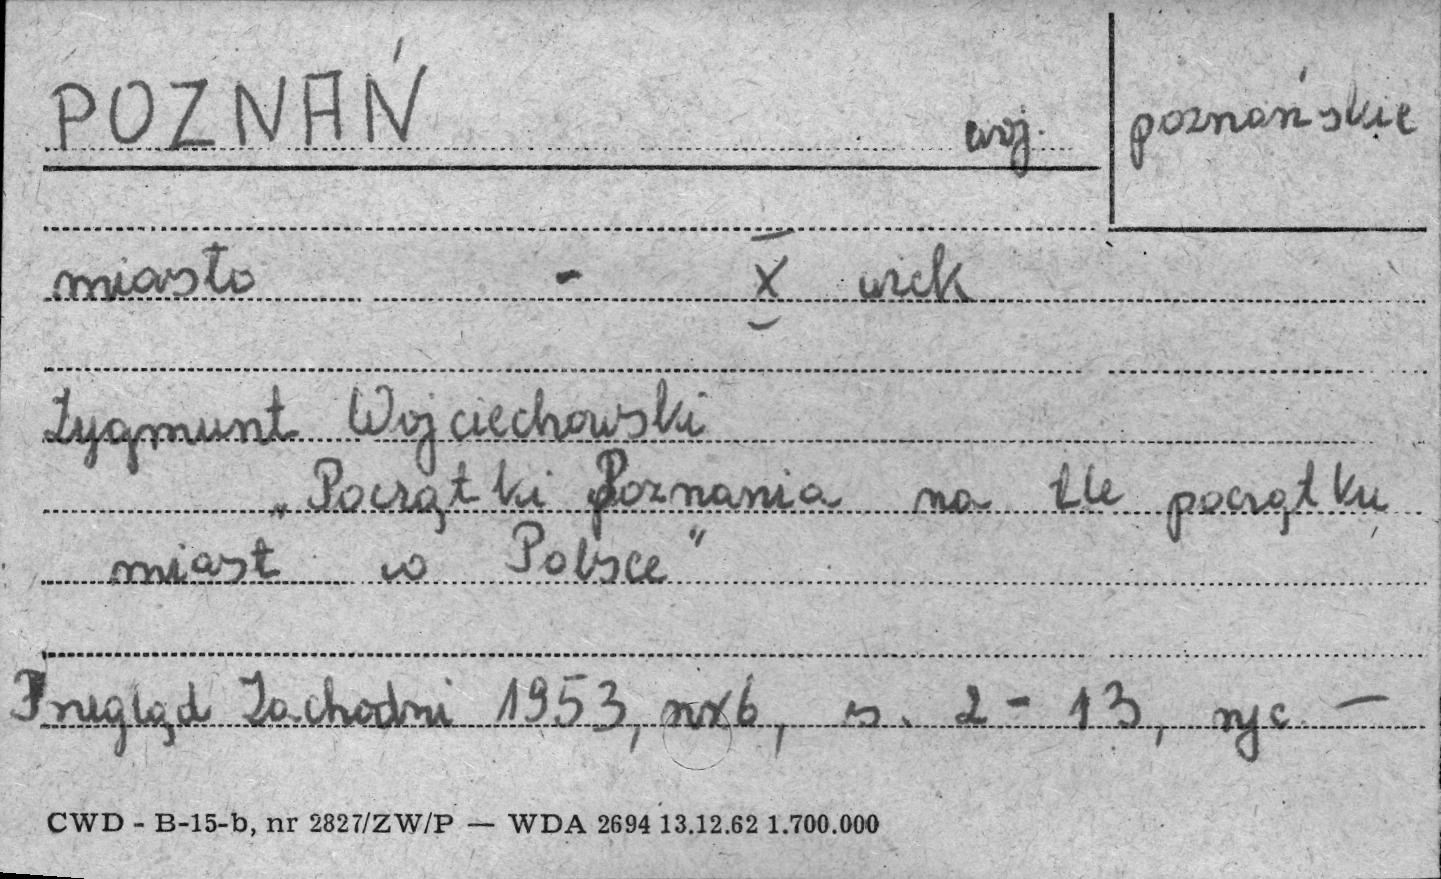 POZNAŃ woj. poznańskie
miasto - X wiek
Zygmunt Wojciechowski
„Początki Poznania na tle początku
miast w Polsce"
Przegląd Zachodni 1953, nr 6, s. 2 - 13, ryc. —
CWD - B-15-b, nr 2827/ZW/P — WDA 2694 13.12.62 1.700.000